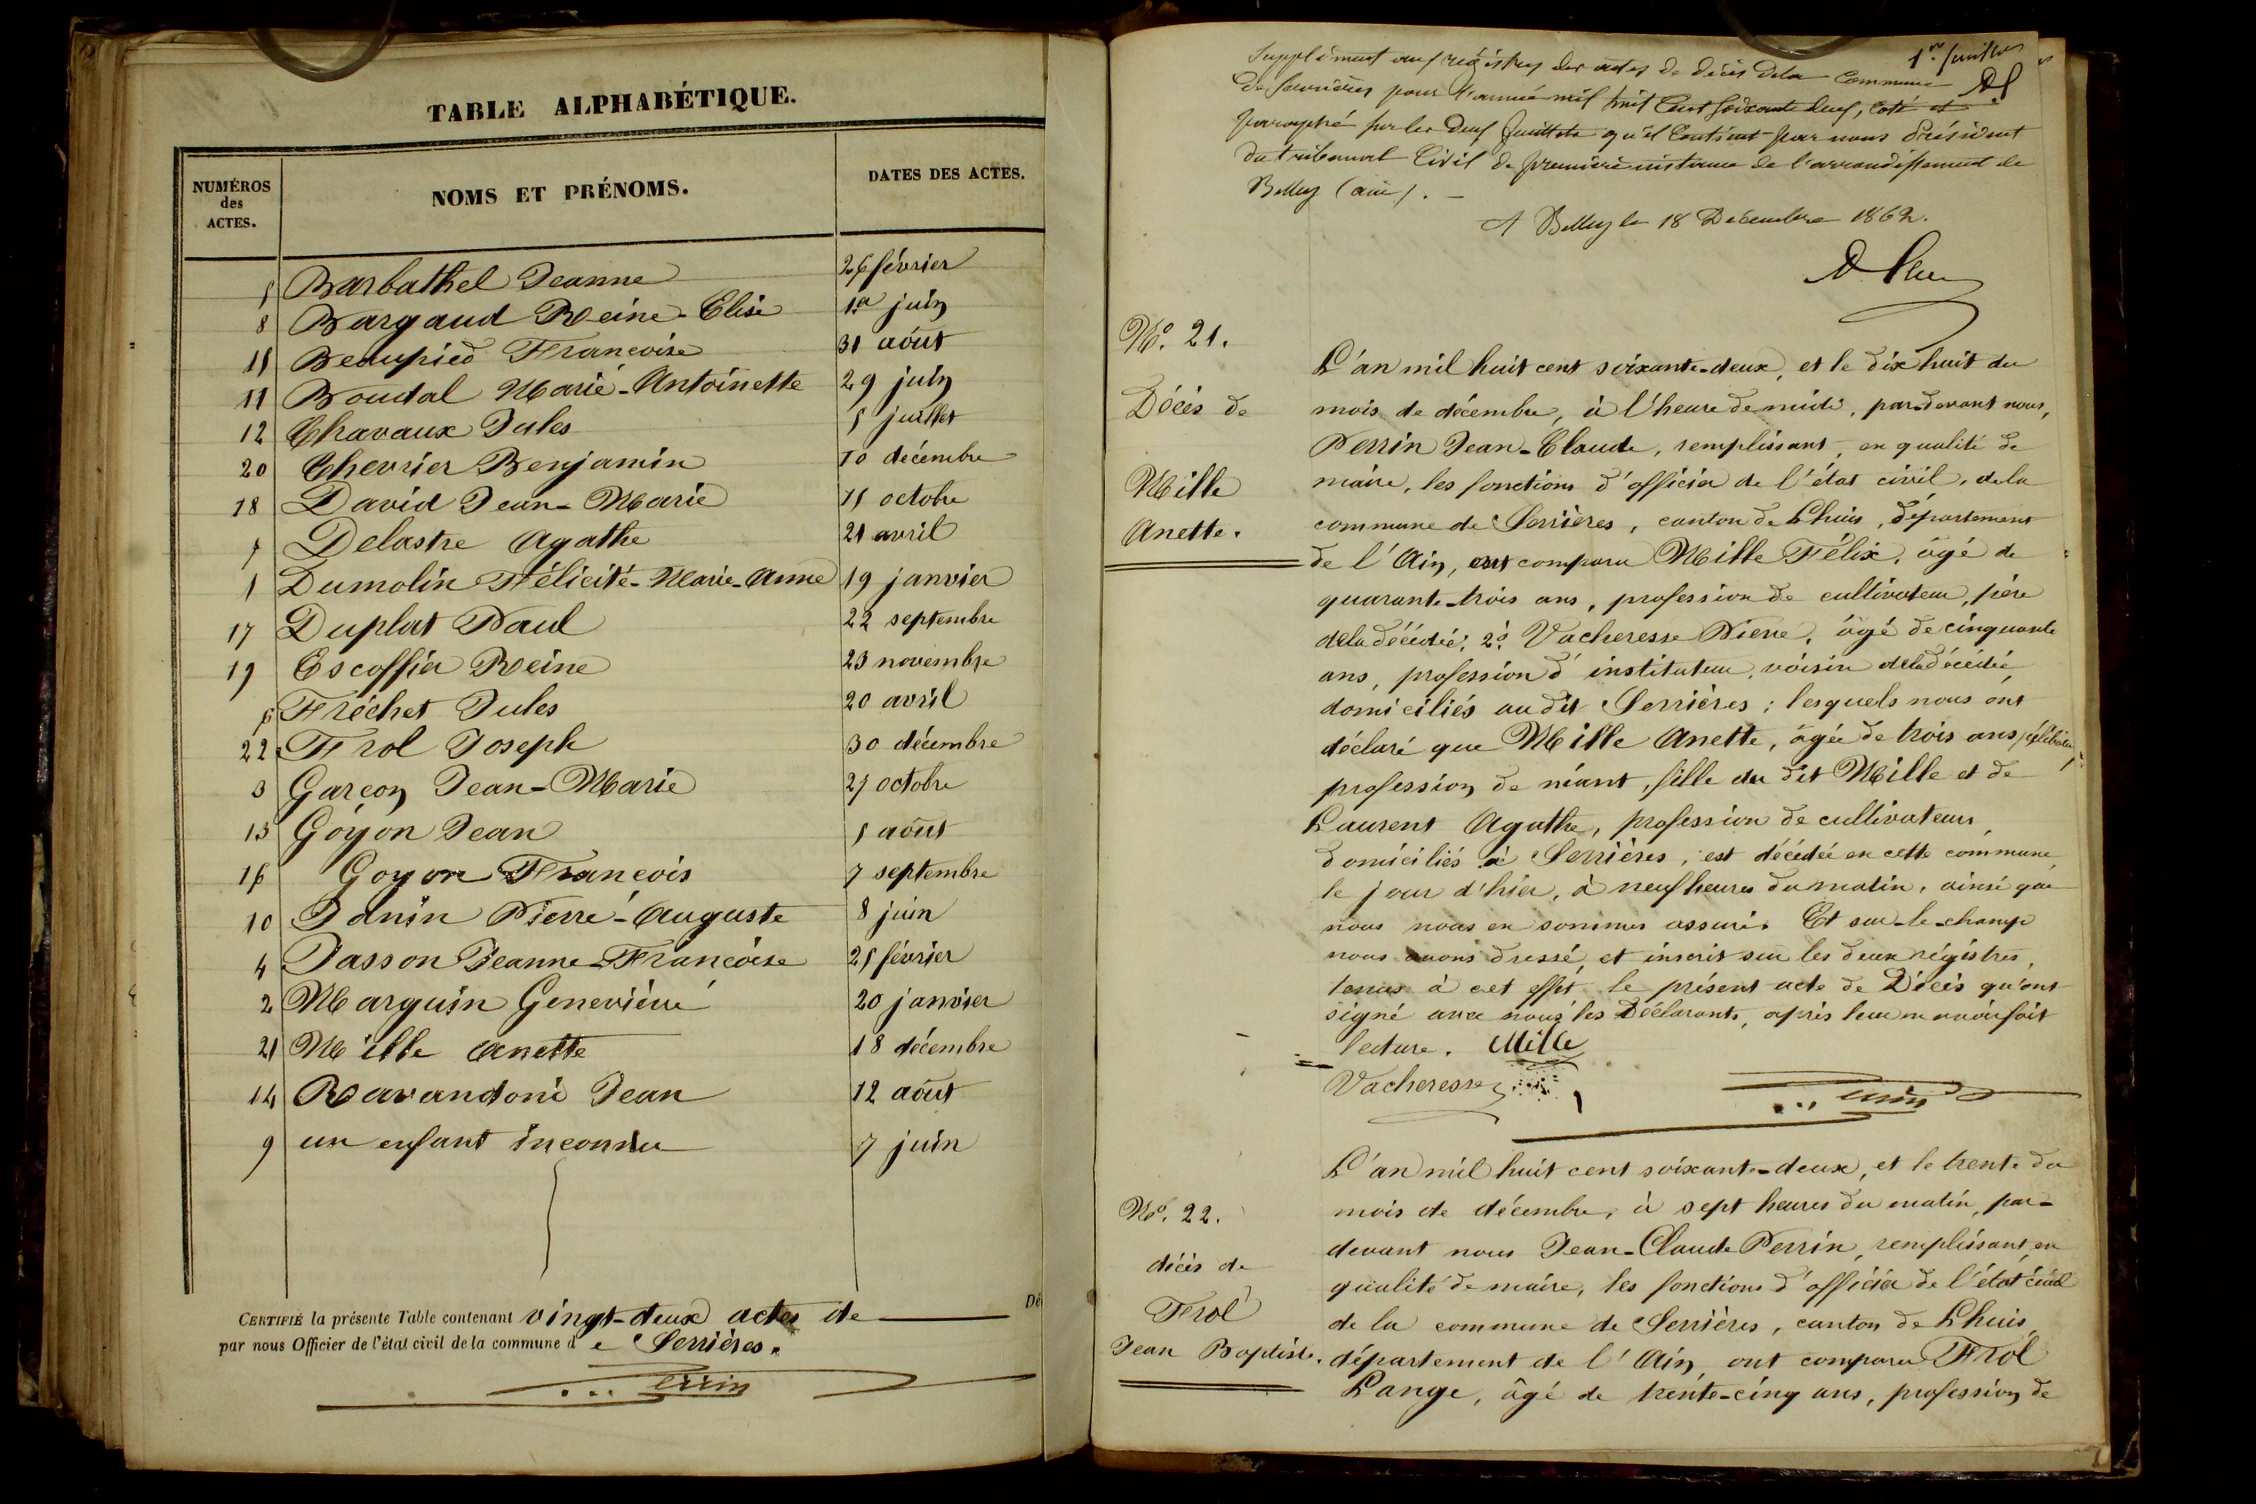 TABLE ALPHABÉTIQUE.
NUMÉROS des ACTES.
NOMS ET PRÉNOMS.
DATES DES ACTES.
5 Barbathel Jeanne 26 février
8 Bargaud Reine-Elise 1er juin
15 Beaupied Francoise 31 août
11 Boudal Marie-Antoinette 29 juin
12 Chavaux Jules 5 juillet
20 Chevrier Benjamin 10 décembre
18 David Jean-Marie 15 octobre
7 Delastre Agathe 21 avril
1 Dumolin Félicité-Marie-Anne 19 janvier
17 Duplat Paul 22 septembre
19 Escoffier Reine 23 novembre
6 Fréchet Jules 20 avril
22 Frol Joseph 30 décembre
3 Garçon Jean-Marie octobre
13 Goyon Jean 5 août
16 Goyon Francois 7 septembre
10 Janin Pierre-Auguste 8 juin
4 Jasson Jeanne-Francoise 25 février
2 Marguin Geneviève 20 janvier
21 Mille Anette 18 décembre
14 Ravandoni Jean 12 août
9 un enfant inconnu 7 juin
CERTIFIÉ la présente Table contenant vingt-deux actes de
par nous Officier de l'état civil de la commune de Serrières.
1er feuillet
Supplément aux régistres des actes de décès de la Commune
de Serrières pour l'année mil huit Cent soixante deux, coté et
paraphé sur les deux feuillets qu'il Contient par nous Président
du tribunal Civil de première instance de l'arrondissement de
Belley (ain). —
A Belley le 18 Décembre 1862.
No. 21.
Décès de
Mille
Anette.
L'an mil huit cent soixante-deux, et le dix huit du
mois de décembre, à l'heure de midi, par-devant nous,
Perrin Jean-Claude, remplissant, en qualité de
maire, les fonctions d'officier de l'état civil, de la
commune de Serrières, canton de Lhuis, département
de l'Ain, ont comparu Mille Félix, âgé de
quarante-trois ans, profession de cultivateur, père
de la décédée; 2º Vacheresse Pierre, âgé de cinquante
ans, profession d'instituteur, voisin de la décédée,
domiciliés au dit Serrières; lesquels nous ont
déclaré que Mille Anette, âgée de trois ans, célibataire,
profession de néant, fille du dit Mille et de
Laurent Agathe, profession de cultivateurs,
domiciliés à Serrières, est décédée en cette commune,
le jour d'hier, à neuf heures du matin, ainsi que
nous nous en sommes assuré. Et sur-le-champ
nous avons dressé et inscrit sur les deux régistres,
tenus à cet effet le présent acte de Décès qu'ont
signé avec nous les Déclarants, après leur en avoir fait
lecture. Mille
Vacheresse
No. 22.
décès de
Frol
Jean Baptiste.
L'an mil huit cent soixante-deux, et le trente du
mois de décembre, à sept heures du matin, par-
devant nous Jean-Claude Perrin, remplissant en
qualité de maire, les fonctions d'officier de l'état civil
de la commune de Serrières, canton de Lhuis,
département de l'Ain, ont comparu Frol
Lange, âgé de trente-cinq ans, profession de